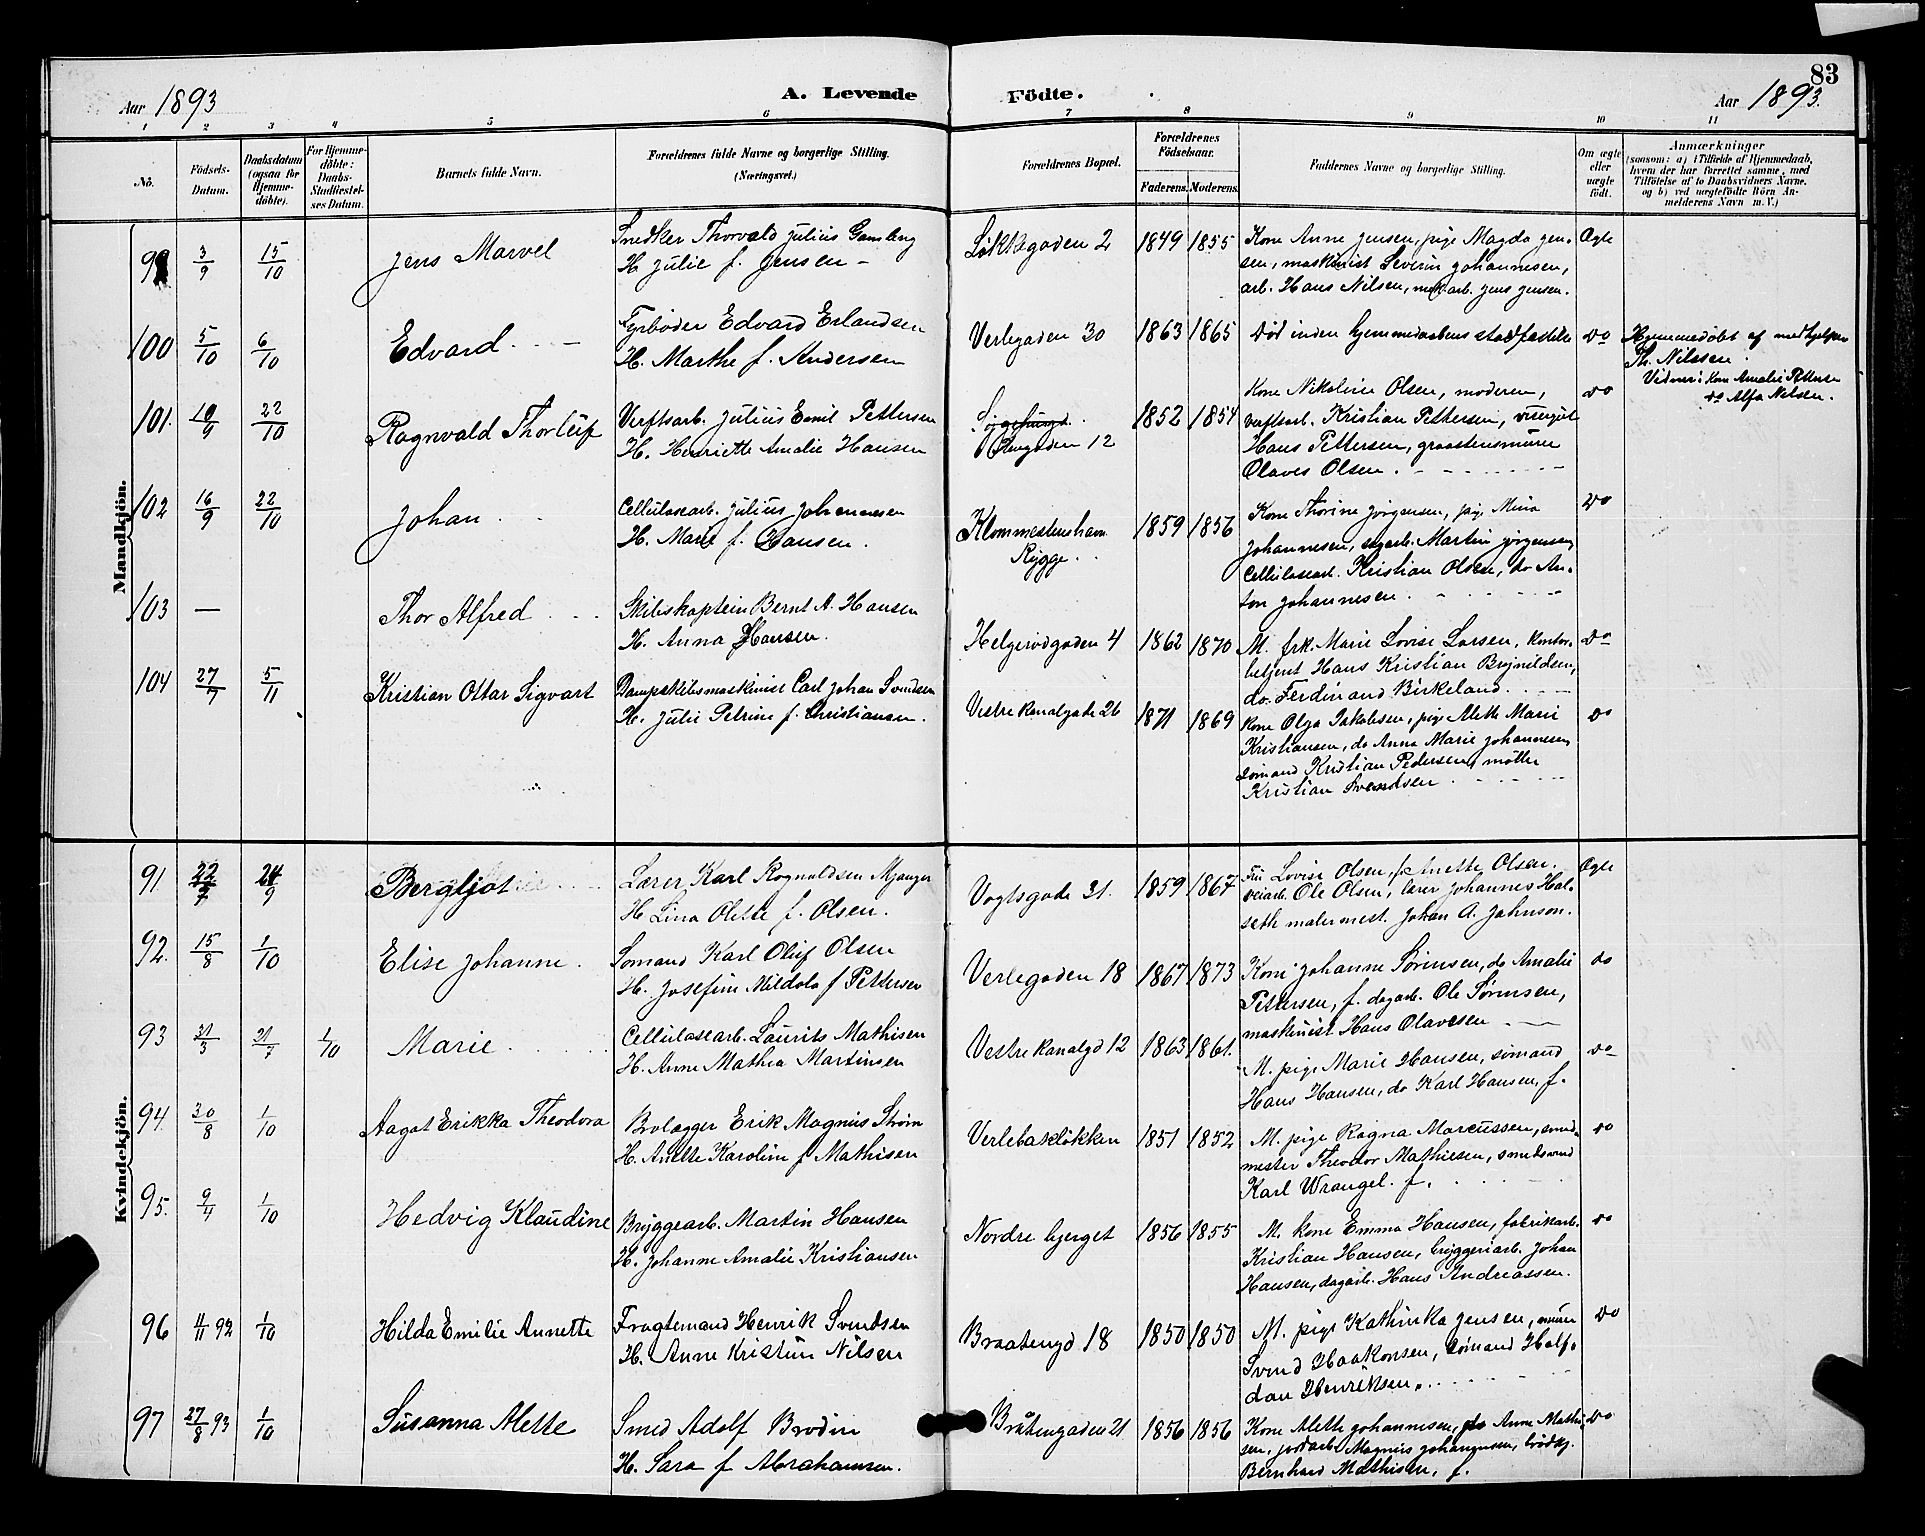 83
Aar 1893
A. Levende
Födte.
Aar 1893.
1 2 3 4 5 6 7 8 9 10 11
No.
Födsels-
Datum.
Daabsdatum
(ogsaa for
Hjemme-
döbte).
For Hjemme-
döbte:
Daabs-
Stadfæstel-
ses Datum.
Barnets fulde Navn.
Forældrenes fulde Navne og borgerlige Stilling.
(Næringsvei.)
Forældrenes Bopæl.
Forældrenes
Födselsaar.
Faderens. Moderens.
Faddernes Navne og borgerlige Stilling.
Om ægte
eller
uægte
födt.
Anmærkninger
(saasom: a) i Tilfælde af Hjemmedaab,
hvem der har forrettet samme, med
Tilföielse af to Daabsvidners Navne,
og b) ved uægtefödte Börn An-
melderens Navn m. V.)
Mandkjön.
99 3/9 15/10 Jens Marvel
Snedker Thorvald Julius Gamleng
H. Julie f. Jensen -
Løkkegaden 2 1849 1855
Kone Anne Jensen, pige Magda Jen-
sen, maskinist Severin Johannesen,
arb. Hans Nilsen, mek. arb. Jens Jensen.
Ægte
100 5/10 6/10 Edvard
Fyrbøder Edvard Erlandsen
H. Marthe f. Andersen
Verlegaden 30 1863 1865
Død inden hjemmedaabens stadfæstelse
do
Hjemmedøbt af medhjelper
Th. Nilssen.
Vidner: Kone Amalie Pettersen
do Alfa Nelsen.
101. 10/9 22/10 Ragnvald Thorleif
Verftsarb. Julius Emil Pettersen
H. Henriette Amalie Hansen
12 1852 1854
Kone Nikoline Olsen, moderen,
verftsarb. Kristian Pettersen,
Hans Pettersen, graastensmurer
Olaves Olsen.
do
102 16/9 22/10 Johan
Cellulosearb. Julius Johannesen
H. Marie f. Hansen.
Klommestenshavn
Rygge. 1859 1856
Kone Thorine Jørgensen, pige Mina
Johannesen, sagarb. Martin Jørgensen,
Cellulosearb. Kristian Olsen, do An-
ton Johannesen.
do
103 — Thor Alfred
Skibskaptein Bernt A. Hansen
H. Anna Hansen.
Helgerødgaden 4 1862 1870
M. frk. Marie Lovise Larsen, kontor-
betjent Hans Kristian Brynildsen,
do. Ferdinand Birkeland.
do
104 27/7 5/11 Kristian Ottar Sigvart
Dampskibsmaskinist Carl Johan Svendsen
H. Julie Petrine f. Christiansen.
Vestre kanalgade 26 1871 1869
Kone Olga Jakobsen, pige Alette Marie
Kristiansen, do Anna Marie Johannesen,
sømand Kristian Pedersen, møller
Kristian Svendsen
do
Kvindekjön.
91 22/7 24/9 Bergljot
Lærer Karl Ragnvaldsen Mjanger
H. Lina Olette f. Olsen.
Vogtsgade 31. 1859 1867
Fru Lovise Olsen, f. Anette Olsen.
veiarb. Ole Olsen, lærer Johannes Hal-
seth malermest. Johan A. Johnson.
Ægte
92. 15/8 1/10 Elise Johanne
Sømand Karl Oluf Olsen
H. Josefine Mildola f Pettersen
Verlegaden 18 1867 1873
Kone Johanne Sørensen, do Amalie
Pettersen, f. dagarb. Ole Sørensen,
maskinist Hans Olavesen
do
93 31/3 31/7 1/10 Marie
Cellulosearb. Laurits Mathisen
H. Anne Mathea Martinsen
Vestre kanalgd 12 1863 1861.
M. pige Marie Hansen, sømand
Hans Hansen, do Karl Hansen, f.
do
94. 30/8 1/10 Aagot Erikka Theodora
Brolægger Erik Magnus Strøm
H. Anette Karoline f Mathisen
Verlebakløkken 1851 1852
M. pige Ragna Marcussen, smed-
mester Theodor Mathiesen, smedsvend
Karl Wrangel. f.
do
95. 9/4 1/10 Hedvig Klaudine
Bryggearb. Martin Hansen
H. Johanne Amalie Kristiansen
Nordre bjerget 1856 1855
M. kone Emma Hansen, fabrikarb.
Kristian Hansen, bryggeriarb. Johan
Hansen, dagarb. Hans Andreassen.
do
96 11/11 92 1/10 Hilda Emilie Annette
Fragtemand Henrik Svendsen
H. Anne Kristine Nilsen
Braatengd 18 1850 1850
M. pige Kathinka Jensen, murer
Svend Haakonsen, sømand Half-
dan Henriksen.
do
97 27/8 93 1/10 Susanna Alette
Smed Adolf Brodin
H. Sara f Abrahamsen.
Bråtengaden 21 1856 1856
Kone Alette Johannesen, do Anne Mathi-
sen, jordarb. Magnus Johannesen, brødkj.
Bernhard Mathisen, f.
do